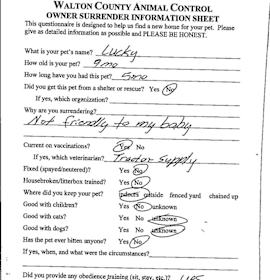 WALTON COUNTY ANIMAL CONTROL
OWNER SURRENDER INFORMATION SHEET
This questionnaire is designed to help us find a new home for your pet. Please
give as detailed information as possible and PLEASE BE HONEST.
What is your pet's name? Lucky
How old is your pet? 9mo
How long have you had this pet? 5mo
Did you get this pet from a shelter or rescue? Yes No
If yes, which organization?
Why are you surrendering?
Not friendly to my baby
Current on vaccinations? Yes No
If yes, which veterinarian? Tractor Supply
Fixed (spayed/neutered)? Yes No
Housebroken/litterbox trained? Yes No
Where did you keep your pet? indoors outside fenced yard chained up
Good with children? Yes No unknown
Good with cats? Yes No unknown
Good with dogs? Yes No unknown
Has the pet ever bitten anyone? Yes No
If yes, when, and what were the circumstances?
Did you provide any obedience training (sit, stay, etc.)?